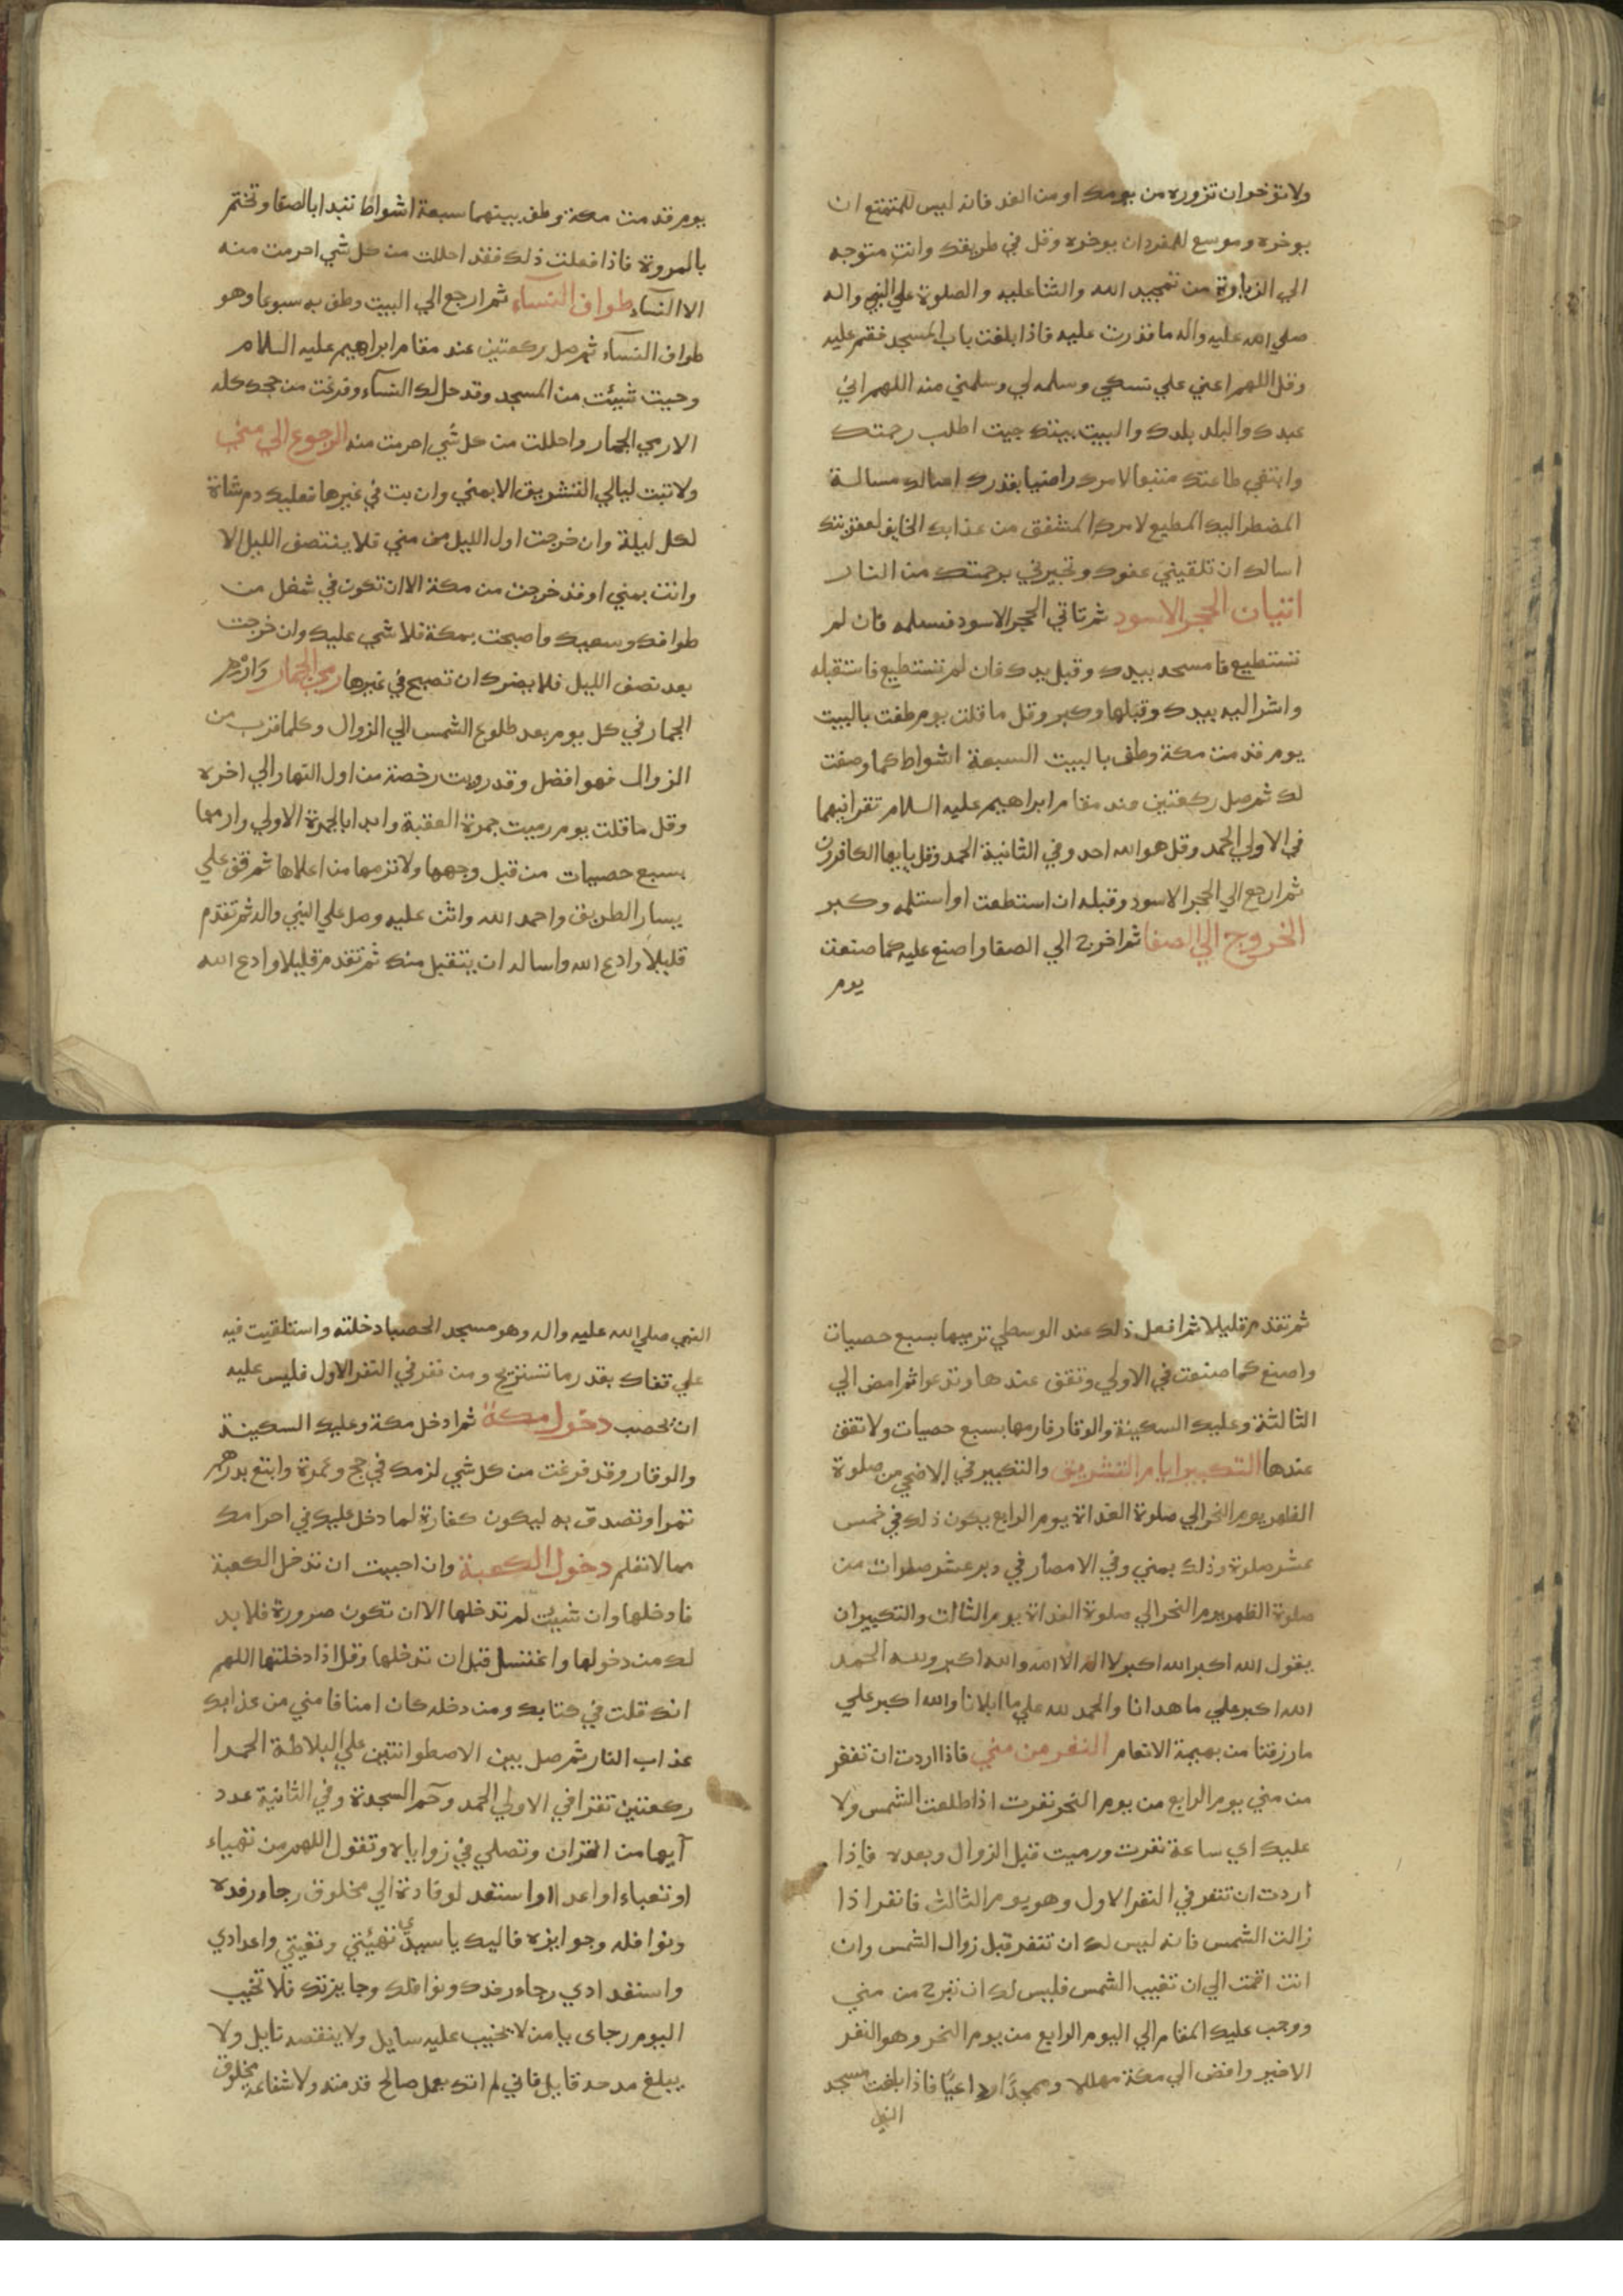 ولا تؤخر ان تزوره من يومك او من الغد فانه ليس للمتمتع ان
يوخره وموسع للمفرد ان يوخره وقل في طريقك وانت متوجه
الي الزيارة من تمجيد الله والثنا عليه والصلوة علي النبي واله
صلي الله عليه واله ما قدرت عليه فاذا بلغت باب المسجد فقم عليه
وقل اللهم اعني علي نسكي وسلمه لي وسلمني منه اللهم اني
عبدك والبلد بلدك والبيت بيتك جيت اطلب رحمتك
وابتغي طاعتك متبعا لامرك راضيا بقدرك اسالك مسالة
المضطر اليك المطيع لامرك المشفق من عذابك الخايف لعقوبتك
اسالك ان تلقيني عفوك وتجيرني برحمتك من النار
اتيان الحجر الاسود ثم تاتي الحجر الاسود فتستلمه فان لم
تستطيع فامسحه بيدك وقبل يدك فان لم تستطيع فاستقبله
واشر اليه بيدك وقبلها وكبر وقل ما قلت يوم طفت بالبيت
يوم قدمت مكة وطف بالبيت السبعة اشواط كما وصفت
لك ثم صل ركعتين عند مقام ابراهيم عليه السلام تقرا فيهما
في الاولي الحمد وقل هو الله احد وفي الثانية الحمد وقل يايها الكافرون
ثم ارجع الي الحجر الاسود وقبله ان استطعت او استلمه وكبر
الخروج الي الصفا ثم اخرج الي الصفا واصنع عليه كما صنعت
يوم
يوم قدمت مكة وطف بينهما سبعة اشواط تبدا بالصفا وتختم
بالمروة فاذا فعلت ذلك فقد احللت من كل شي احرمت منه
الا النسآء طواف النسآء ثم ارجع الي البيت وطف به سبوعا وهو
طواف النسآء ثم صل ركعتين عند مقام ابراهيم عليه السلام
وحيت شيئت من المسجد وقد حل لك النسآء وفرغت من حجك كله
الا رمي الجمار واحللت من كل شي احرمت منه الرجوع الي مني
ولا تبت ليالي التشريق الا بمني وان بت في غيرها فعليك دم شاة
لكل ليلة وان خرجت اول الليل من مني فلا ينتصف الليل الا
وانت بمني او قد خرجت من مكة الا ان تكون في شغل من
طوافك وسعيك واصبحت بمكة فلا شي عليك وان خرجت
بعد نصف الليل فلا يضرك ان تصبح في غيرها رمي الجمار وارم
الجمار في كل يوم بعد طلوع الشمس الي الزوال وكلما قرب من
الزوال فهو افضل وقد رويت رخصة من اول النهار الي اخره
وقل ما قلت يوم رميت جمرة العقبة وابدا بالجمرة الاولي وارمها
بسبع حصيات من قبل وجهها ولا ترمها من اعلاها ثم قف علي
يسار الطريق واحمد الله واثن عليه وصل علي النبي واله ثم تقدم
قليلا وادع الله واساله ان يتقبل منك ثم تقدم قليلا وادع الله
ثم تقدم قليلا ثم افعل ذلك عند الوسطي ترميها بسبع حصيات
واصنع كما صنعت في الاولي وتقف عندها وتدعوا ثم امض الي
الثالثة وعليك السكينة والوقار فارمها بسبع حصيات ولا تقف
عندها التكبير ايام التشريق والتكبير في الاضحي من صلوة
الظهر يوم النحر الي صلوة الغداة يوم الرابع يكون ذلك في خمس
عشر صلوة وذلك بمني وفي الامصار في دبر عشر صلوات من
صلوة الظهر يوم النحر الي صلوة الغداة يوم الثالث والتكبير ان
يقول الله اكبر الله اكبر لا اله الا الله والله اكبر ولله الحمد
الله اكبر علي ما هدانا والحمد لله علي ما ابلانا والله اكبر علي
ما رزقنا من بهيمة الانعام النفر من مني فاذا اردت ان تنفر
من مني يوم الرابع من يوم النحر نفرت اذا طلعت الشمس ولا
عليك اي ساعة نفرت ورميت قبل الزوال وبعده فاذا
اردت ان تنفر في النفر الاول وهو يوم الثالث فانفر اذا
زالت الشمس فانه ليس لك ان تنفر قبل زوال الشمس وان
انت اقمت الي ان تغيب الشمس فليس لك ان تخرج من مني
ووجب عليك المقام الي اليوم الرابع من يوم النحر وهو النفر
الاخير وافض الي مكة مهللا وممجدا داعيا فاذا بلغت مسجد
النبي
النبي صلي الله عليه واله وهو مسجد الحصبا دخلته واستلقيت فيه
علي قفاك بقدر ما تستريح ومن نفر في النفر الاول فليس عليه
ان يحصب دخول مكة ثم ادخل مكة وعليك السكينة
والوقار وقد فرغت من كل شي لزمك في حج وعمرة وابتع بدرهم
تمرا وتصدق به ليكون كفارة لما دخل عليك في احرامك
مما لا تعلم دخول الكعبة وان احببت ان تدخل الكعبة
فادخلها وان شيئت لم تدخلها الا ان تكون صرورة فلا بد
لك من دخولها واغتسل قبل ان تدخلها وقل اذا دخلتها اللهم
انك قلت في كتابك ومن دخله كان امنا فامني من عذابك
عذاب النار ثم صل بين الاصطوانتين علي البلاطة الحمرا
ركعتين تقرا في الاولي الحمد وحم السجدة وفي الثانية عدد
آيها من القران وتصلي في زواياه وتقول اللهم من تهياء
او تعباء او اعد او استعد لوفادة الي مخلوق رجاء رفده
ونوافله وجوايزه فاليك يا سيدي تهيئتي وتعبتي واعدادي
واستعدادي رجاء رفدك ونوافلك وجايزتك فلا تخيب
اليوم رجاى يا من لا يخيب عليه سايل ولا ينقصه نايل ولا
يبلغ مدحه قايل فاني لم اتك بعمل صالح قدمته ولا شفاعة مخلوق